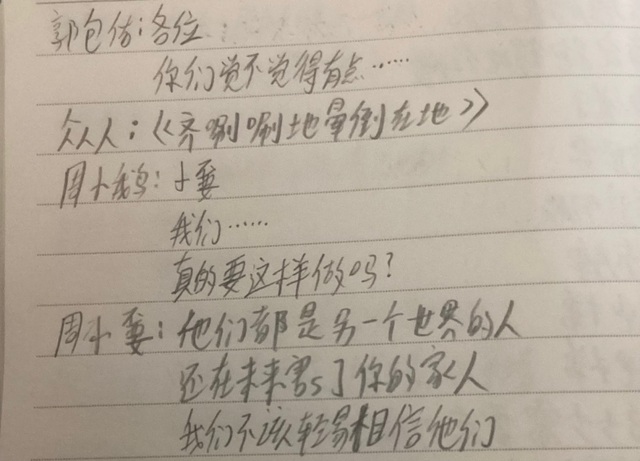 郭包佑：各位
你们觉不觉得有点……
众人：《齐唰唰地晕倒在地》
周小鹅：小要
我们……
真的要这样做吗？
周小要：他们都是另一个世界的人
还在未来害s了你的家人
我们不该轻易相信他们